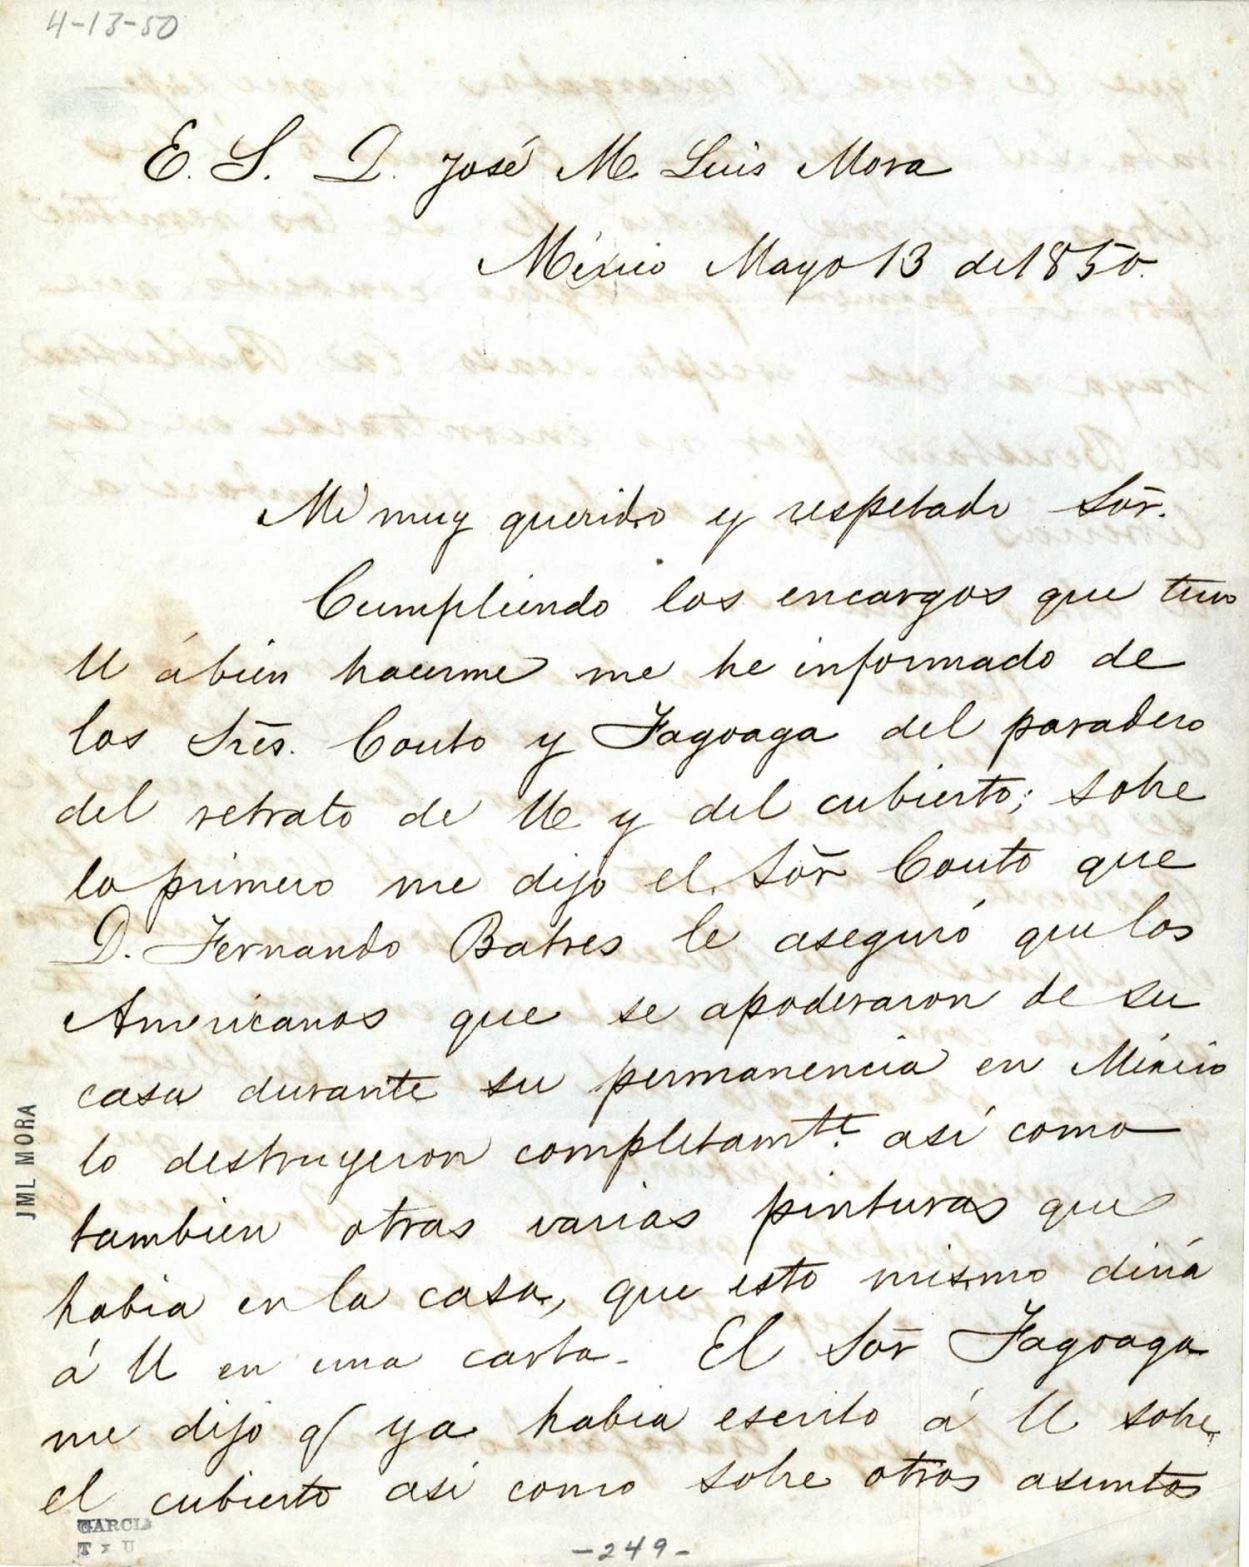 4-13-50
E. S. D. José M. Luis Mora
México Mayo 13 de 1850.
Mi muy querido y respetado Sõr.
Cumpliendo los encargos que tuvo
U á bien hacerme me he informado de
los Srẽs. Couto y Fagoaga del paradero
del retrato de U y del cubierto; sobre
lo primero me dijo el Sõr Couto que
D. Fernando Batres le aseguró que los
Americanos que se apoderaron de su
casa durante su permanencia en México
lo destruyeron completamte. así como
tambien otras varias pinturas que
habia en la casa, que esto mismo diría
á U en una carta. El Sõr Fagoaga
me dijo q ya habia escrito á U sobre
el cubierto asi como sobre otros asuntos
JML MORA
GARCIA
T x U
-249-